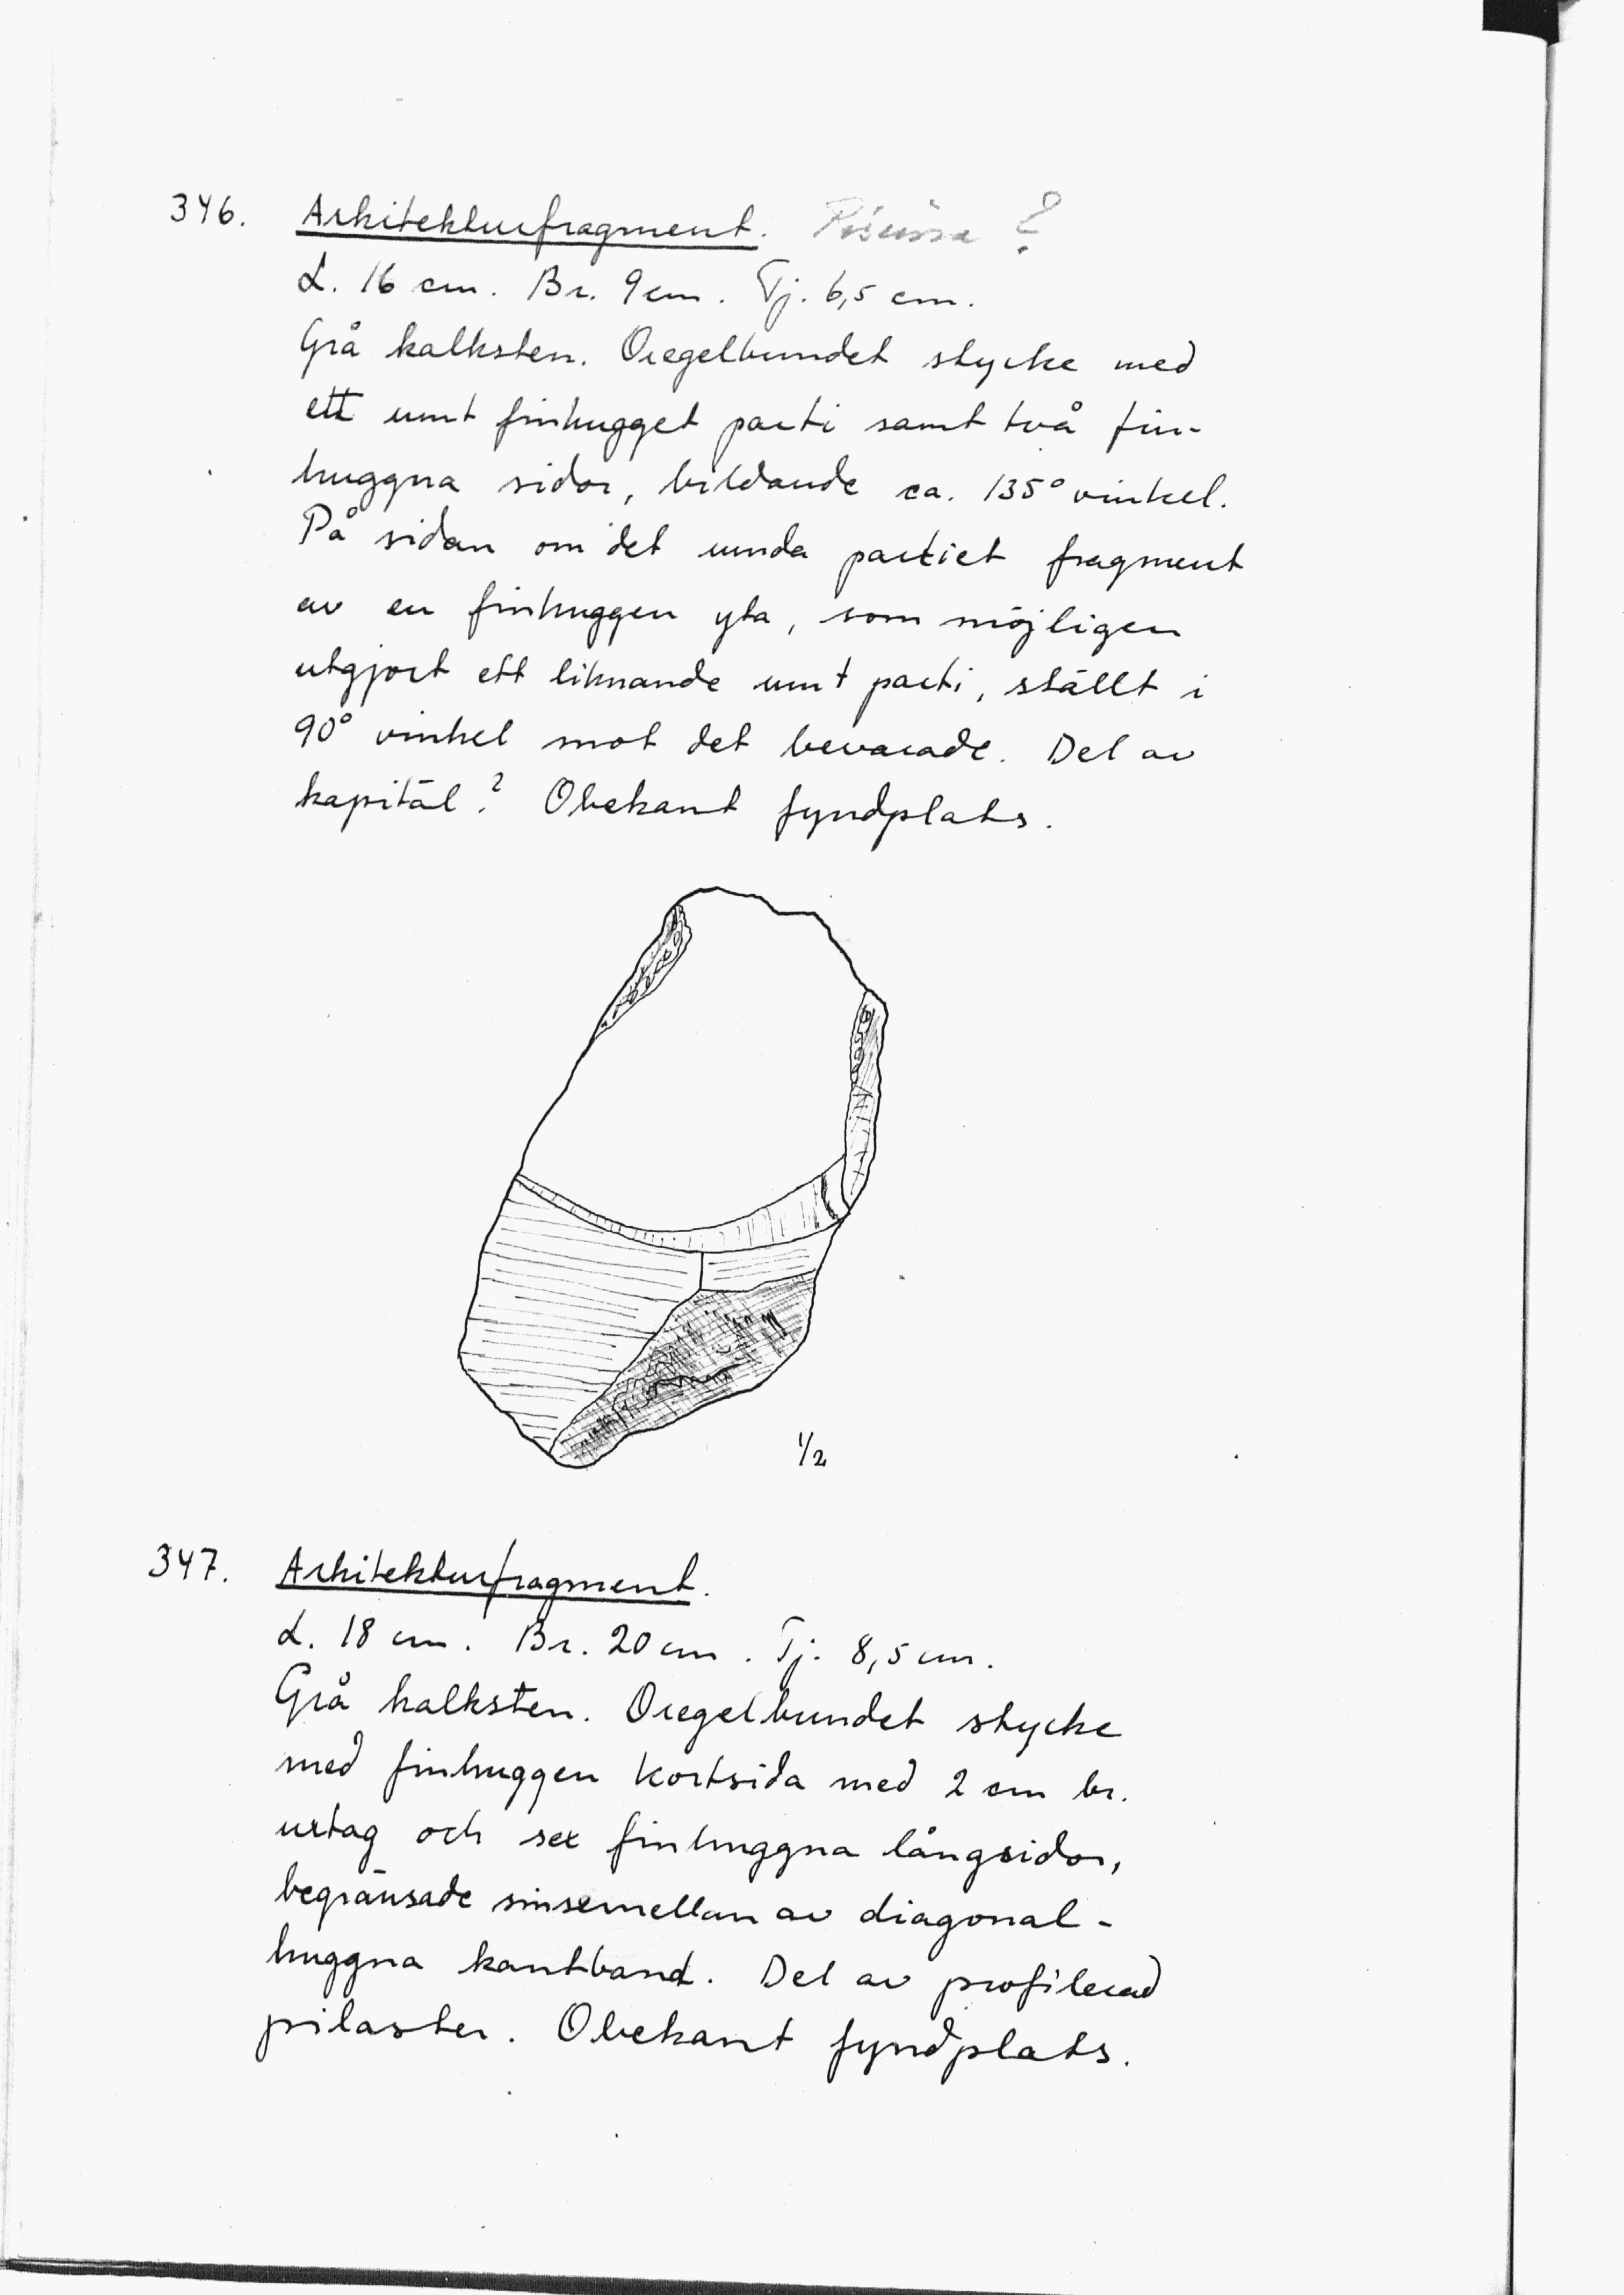 346. Arkitekturfragment. Piscina ?
L. 16 cm. Br. 9 cm. Tj. 6,5 cm.
Grå kalksten. Oregelbundet stycke med
ett runt finhugget parti samt två fin-
huggna sidor, bildande ca. 135° vinkel.
På sidan om det runda partiet fragment
av en finhuggen yta, som möjligen
utgjort ett liknande runt parti, ställt i
90° vinkel mot det bevarade. Del av
kapitäl? Obekant fyndplats.
1/2
347. Arkitekturfragment.
L. 18 cm. Br. 20 cm. Tj. 8,5 cm.
Grå kalksten. Oregelbundet stycke
med finhuggen kortsida med 2 cm br.
urtag och sex finhuggna långsidor,
begränsade sinsemellan av diagonal-
huggna kantband. Del av profilerad
pilaster. Obekant fyndplats.